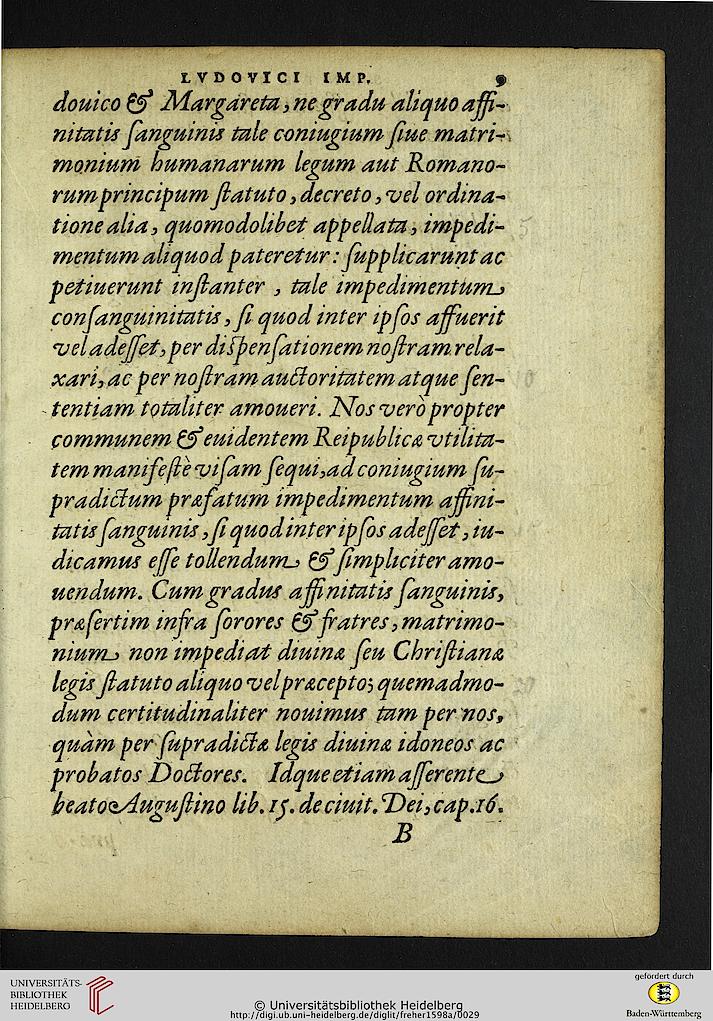 LVDOVICI IMP. 9
douico & Margareta, ne gradu aliquo affi-
nitatis ſanguinis tale coniugium ſiue matri-
monium humanarum legum aut Romano-
rum principum ſtatuto, decreto, vel ordina-
tione alia, quomodolibet appellata, impedi-
mentum aliquod pateretur: ſupplicarunt ac
petiuerunt inſtanter, tale impedimentum
conſanguinitatis, ſi quod inter ipſos affuerit
vel adeſſet, per diſpenſationem noſtram rela-
xari, ac per noſtram auctoritatem atque ſen-
tentiam totaliter amoueri. Nos verò propter
communem & euidentem Reipublicæ vtilita-
tem manifeſtè viſam ſequi, ad coniugium ſu-
pradictum præfatum impedimentum affini-
tatis ſanguinis, ſi quod inter ipſos adeſſet, iu-
dicamus eſſe tollendum & ſimpliciter amo-
uendum. Cum gradus affinitatis ſanguinis,
præſertim infra ſorores & fratres, matrimo-
nium non impediat diuinæ ſeu Chriſtianæ
legis ſtatuto aliquo vel præcepto; quemadmo-
dum certitudinaliter nouimus tam per nos,
quàm per ſupradictæ legis diuinæ idoneos ac
probatos Doctores. Idque etiam aſſerente
beato Auguſtino lib. 15. de ciuit. Dei, cap. 16.
B
UNIVERSITÄTS-
BIBLIOTHEK
HEIDELBERG
© Universitätsbibliothek Heidelberg
http://digi.ub.uni-heidelberg.de/diglit/freher1598a/0029
gefördert durch
Baden-Württemberg